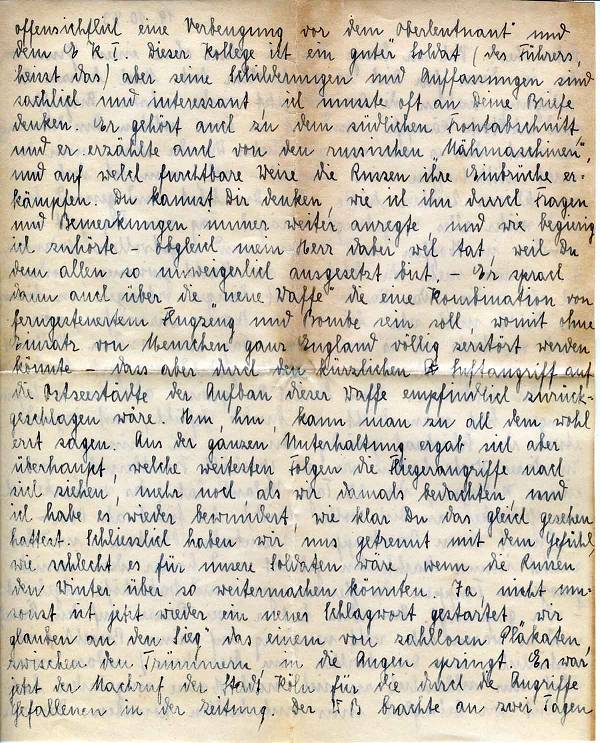 offensichtlich eine Verbeugung vor dem "Oberleutnant" und
dem E K I. Dieser Kollege ist ein "guter" Soldat (des Führers,
heisst das) aber seine Schilderungen und Auffassungen sind
sachlich und interessant, ich musste oft an Deine Briefe
denken. Er gehört auch zu dem südlichen Frontabschnitt
und er erzählte auch von den russischen "Nähmaschinen",
und auf welch furchtbare Weise die Russen ihre Einbrüche er-
kämpfen. Du kannst Dir denken, wie ich ihn durch Fragen
und Bemerkungen immer weiter anregte, und wie begierig
ich zuhörte – obgleich mein Herz dabei weh tat, weil Du
dem allen so unweigerlich ausgesetzt bist. – Er sprach
dann auch über die "neue Waffe" die eine Kombination von
ferngesteuertem Flugzeug und Bombe sein soll, womit ohne
Einsatz von Menschen ganz England völlig zerstört werden
könnte – dass aber durch den kürzlichen Luftangriff auf
die Ostseestädte der Aufbau dieser Waffe empfindlich zurück-
geschlagen wäre. Hm, hm, kann man zu all dem wohl
erst sagen. Aus der ganzen Unterhaltung ergab sich aber
überhaupt, welche weitesten Folgen die Fliegerangriffe nach
sich ziehen, mehr noch, als wir damals bedachten, und
ich habe es wieder bewundert, wie klar Du das gleich gesehen
hattest. Schliesslich haben wir uns getrennt mit dem Gefühl,
wie schlecht es für unsere Soldaten wäre wenn die Russen
den Winter über so weitermachen könnten. Ja, nicht um-
sonst ist jetzt wieder ein neues Schlagwort gestartet "wir
glauben an den Sieg", das einem von zahllosen Plakaten,
zwischen den Trümmern, in die Augen springt. Es war
jetzt der Nachruf der Stadt Köln für die durch die Angriffe
Gefallenen in der Zeitung. Der B brachte an zwei Tagen